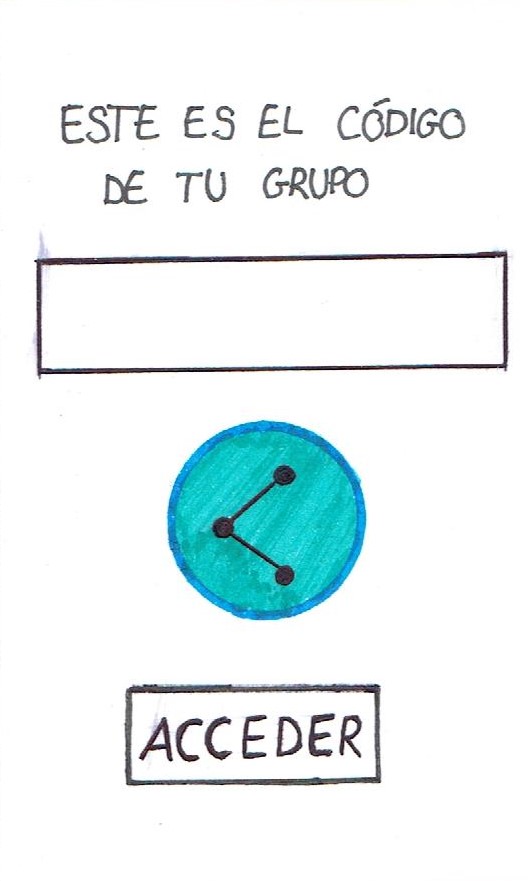 ESTE ES EL CÓDIGO
DE TU GRUPO
ACCEDER